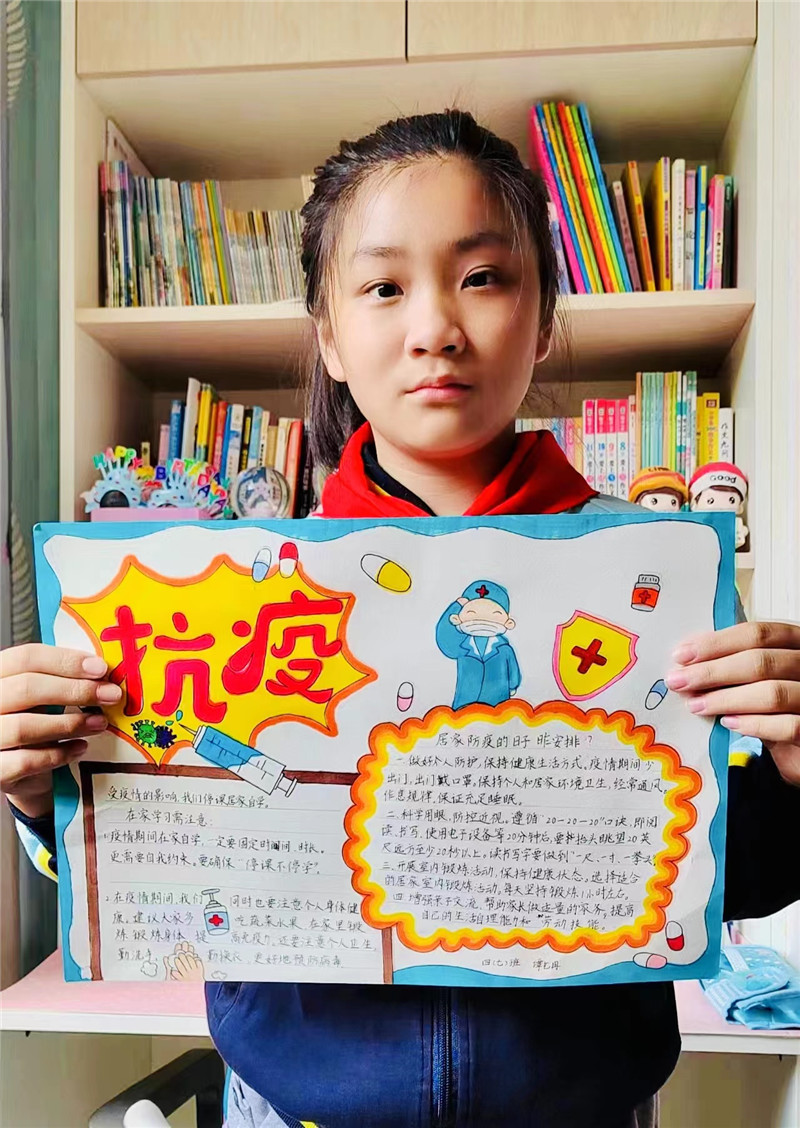 HAPPY BIRTHDAY
GOOD
抗疫
受疫情的影响,我们停课居家自学。
在家学习需注意:
1.疫情期间在家自学,一定要固定时间间,时长。
更需要自我约束。要确保“停课不停学”。
2.在疫情期间,我们同时也要注意个人身体健
康,建议大家多吃蔬菜水果,在家里锻
炼锻炼身体,提高免疫力,还要注意个人卫生。
勤洗手,勤换衣,更好地预防病毒。
居家防疫的日子咋安排?
一.做好个人防护,保持健康生活方式,疫情期间少
出门,出门戴口罩。保持个人和居家环境卫生,经常通风,
作息规律,保证充足睡眠。
二.科学用眼,防控近视。遵循“20-20-20”口诀,即阅
读、书写、使用电子设备等20分钟后,要抬头眺望20英
尺远方至少20秒以上。读书写字要做到“一尺、一寸、一拳头”
三.开展室内锻炼活动,保持健康状态。选择适合
的居家室内锻炼活动,每天坚持锻炼1小时左右。
四.增强亲子交流,帮助家长做适量的家务,提高
自己的生活自理能力和“劳动技能。
四(七)班